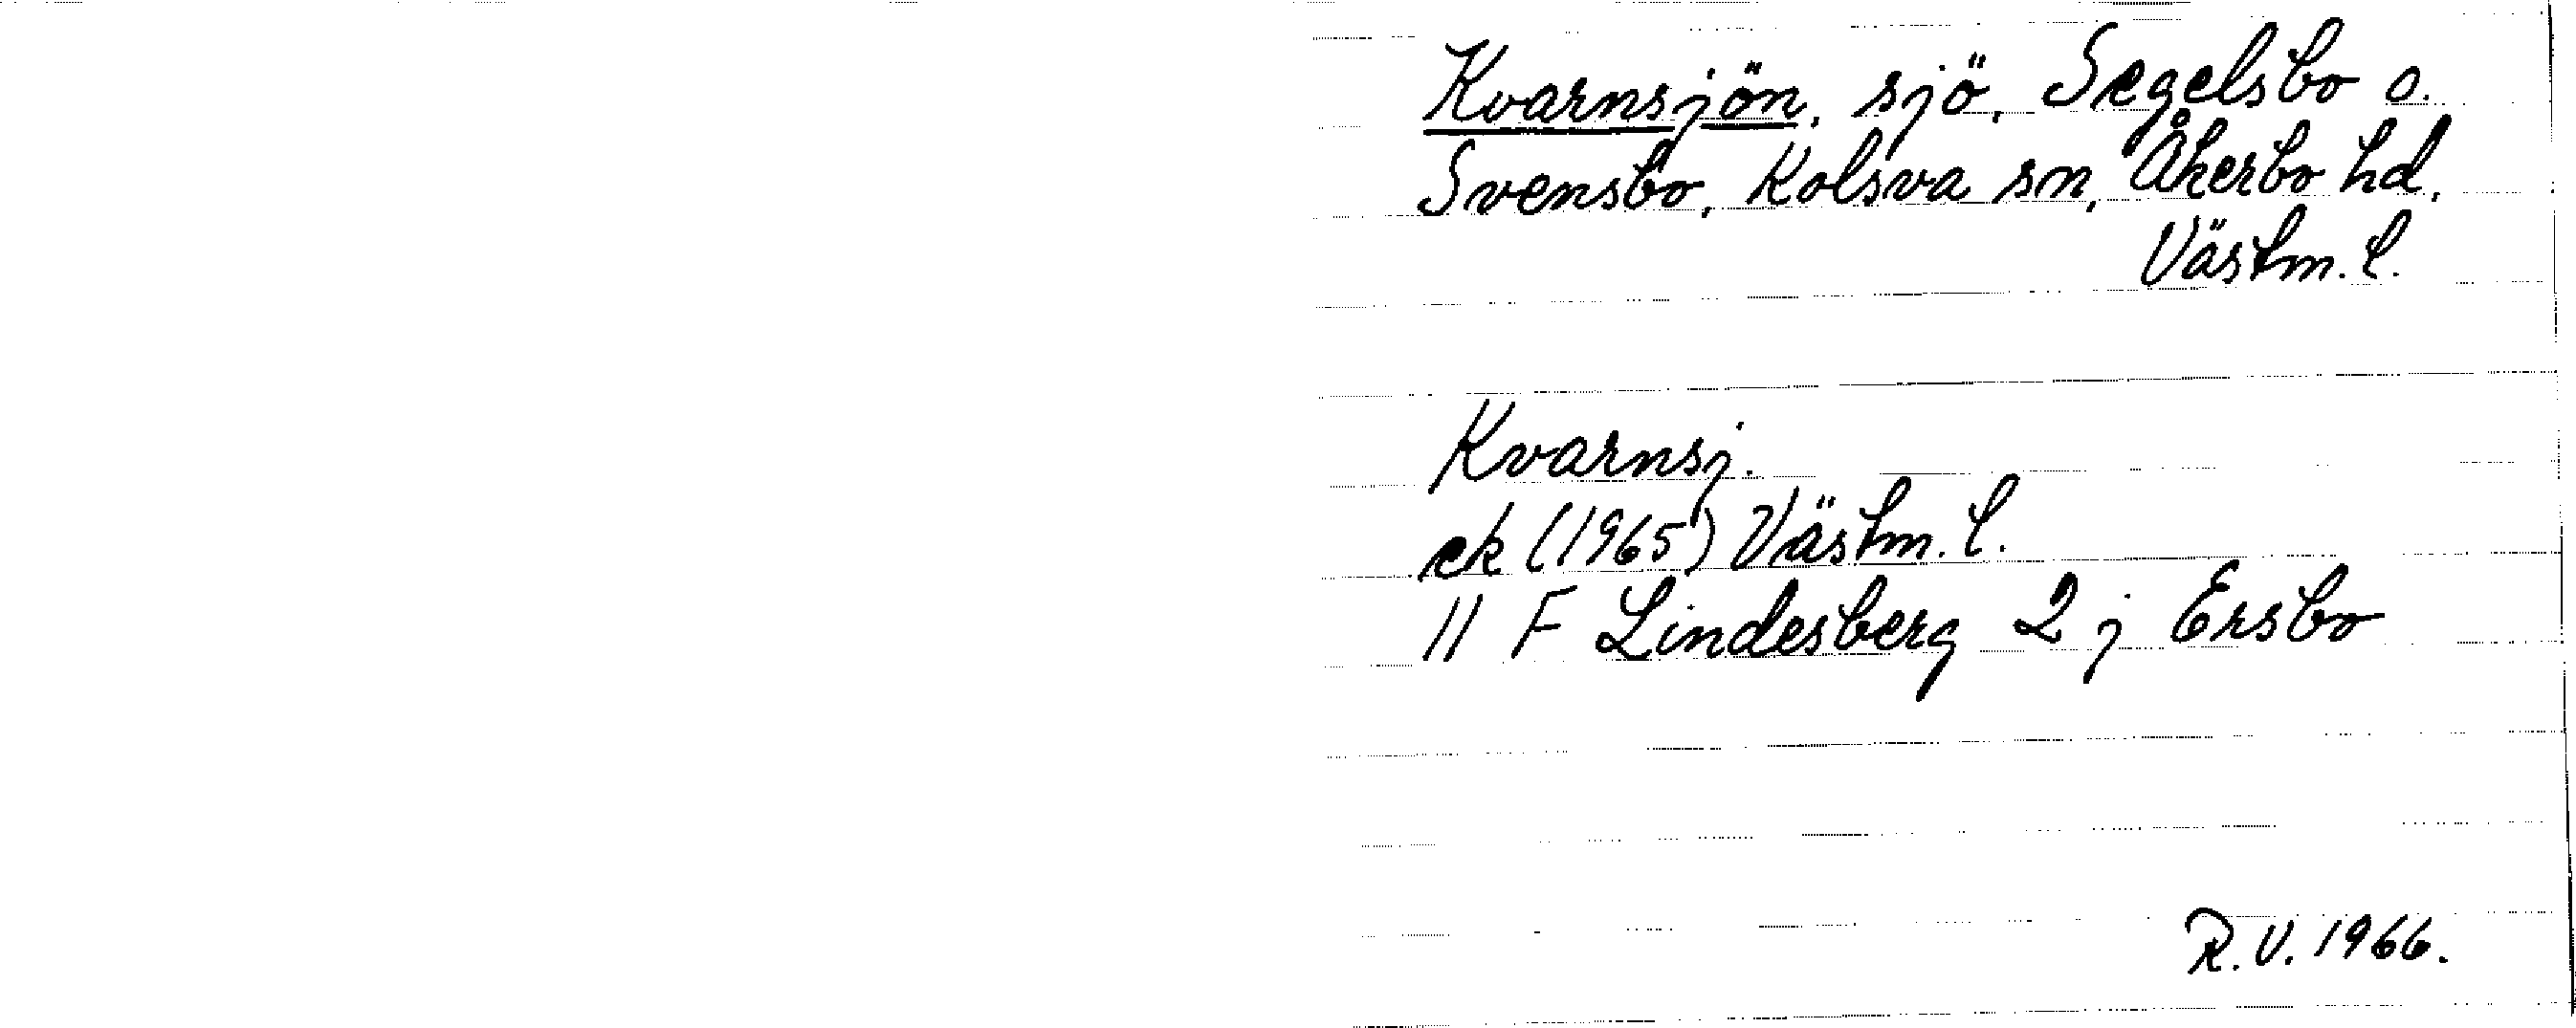 Kvarnsjön, sjö, Segelsbo o.
Svensbo, Kolsva sn, Åkerbo hd,
Västm. l.
Kvarnsj.
ek (1965) Västm. l.
11 F Lindesberg 2 j Ersbo
R. V. 1966.